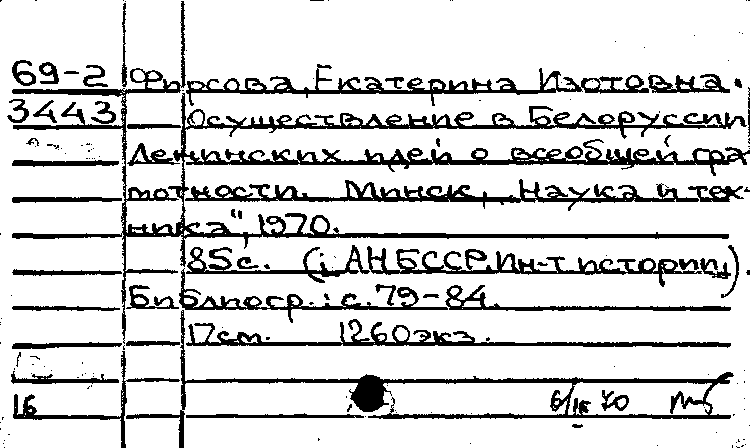 69-2 Фирсова, Екатерина Изотовна.
3443 Осуществление в Белоруссии
Ленинских идей о всеобщей гра-
мотности. Минск, „Наука и тех-
ника", 1970.
85с. (АН БССР. Ин-т истории).
Библиогр.: с. 79-84.
17см. 1260экз.
16 70